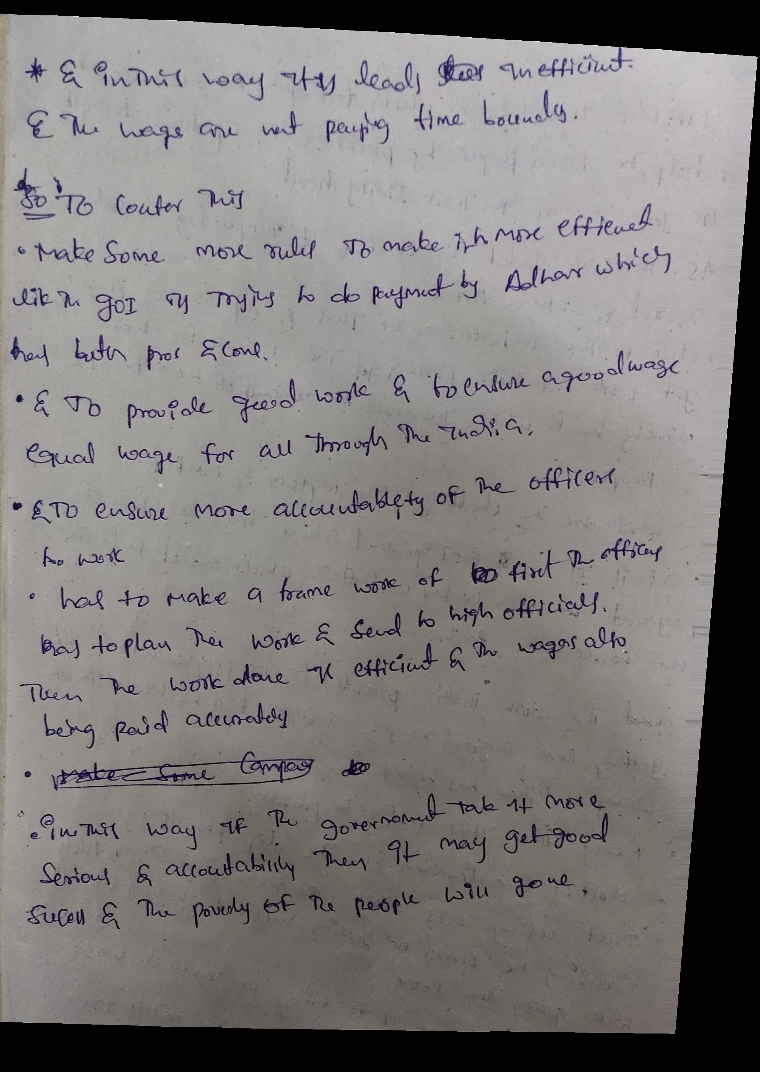 * & in this way it is leads inefficient.
& The wage are not paying time boundy.
So To Couter This
• Make Some more rules To make it more efficient
like in GOI is Trying to do payment by Adhar which
has both pros & cons.
• & To provide good work & to ensure a good wage
equal wage for all through The India.
• & To ensure more accountablety of The officers
to work
• has to make a frame work of first The officers
has to plan Their work & send to high officials.
Then The work done is efficient & The wages also
being paid accurately
• Make Some Campag to
• In this way if The government take it more
Serious & accountability Then It may get good
Sucess & The poverty of The people will gone.